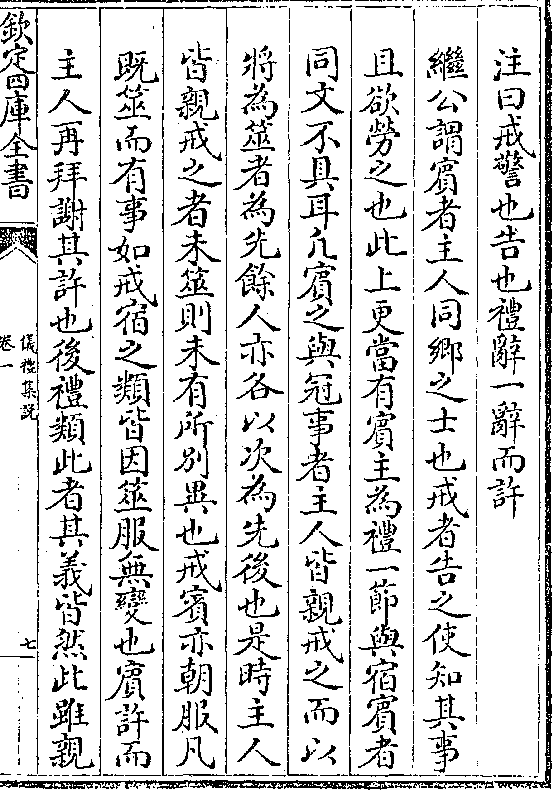 注曰戒警也告也禮辭一辭而許
繼公謂賓者主人同鄉之士也戒者告之使知其事
且欲勞之也此上更當有賓主為禮一節與宿賓者
同文不具耳凡賓之與冠事者主人皆親戒之而以
將為筮者為先餘人亦各以次為先後也是時主人
皆親戒之者未筮則未有所別異也戒賓亦朝服凡
既筮而有事如戒宿之類皆因筮服無變也賓許而
主人再拜謝其許也後禮類此者其義皆然此雖親
欽定四庫全書
儀禮集說
卷一
七